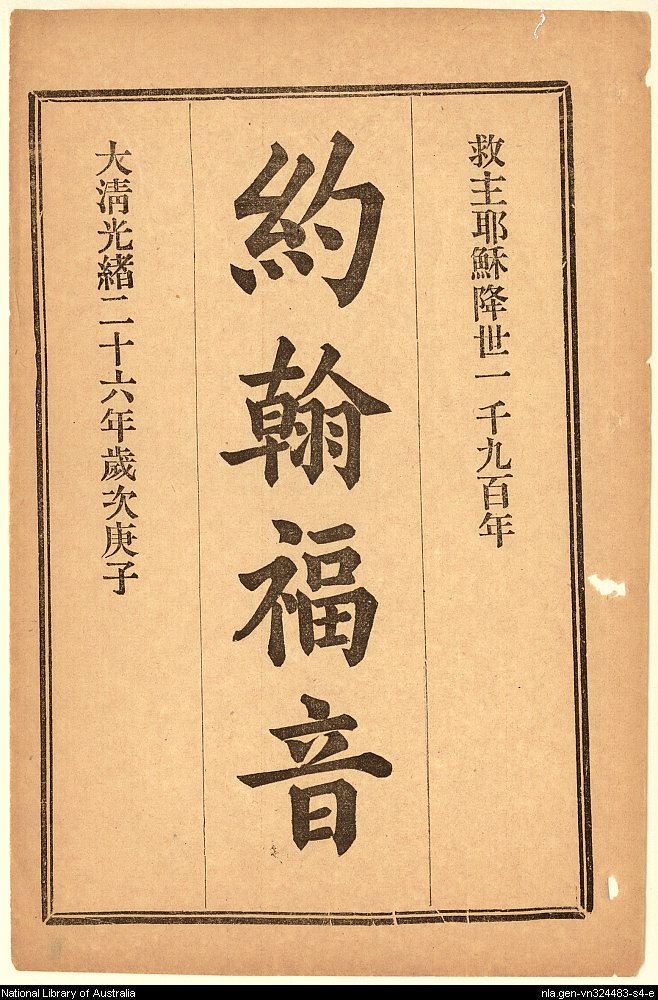 救主耶穌降世一千九百年
約翰福音
大淸光緖二十六年歲次庚子
National Library of Australia
nla.gen-vn324483-s4-e